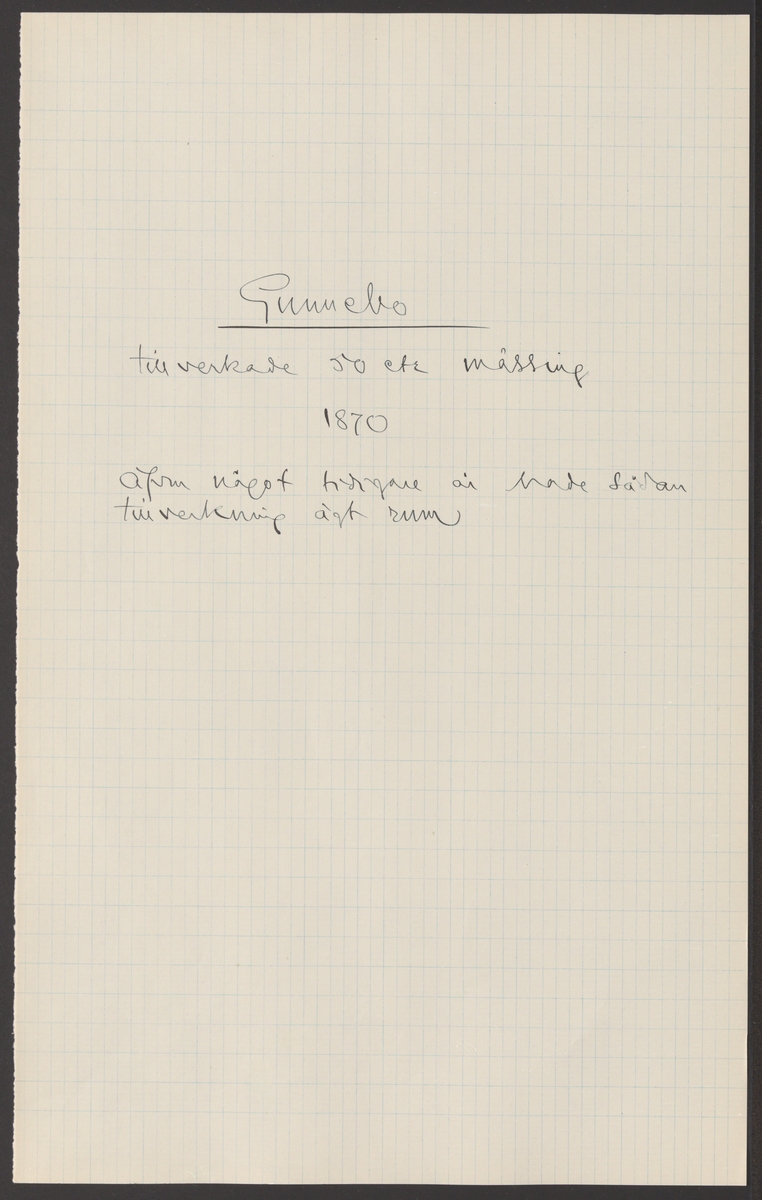 Gunnebo
tillverkade 50 ctr mässing
1870
Äfven något tidigare år hade sådan
tillverkning ägt rum